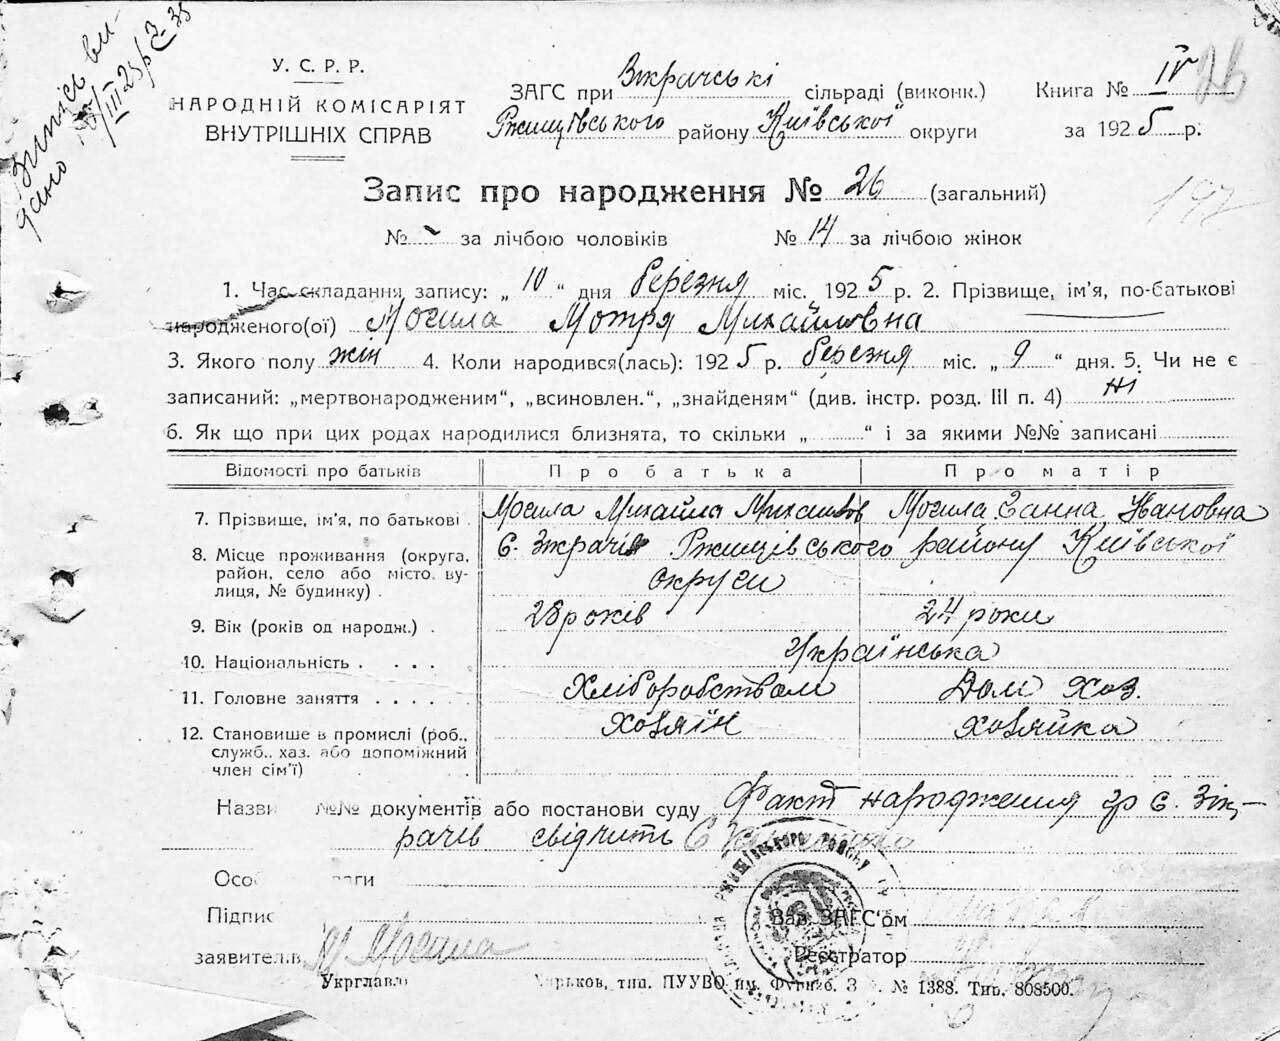 Випись ви-
дано
У. С. Р. Р.
НАРОДНІЙ КОМІСАРІЯТ
ВНУТРІШНІХ СПРАВ
ЗАГС при Зікрачські сільраді (виконк.) Книга № IV 26
Ржищівського району Київської округи за 1925 р.
Запис про народження № 26 (загальний)
197
№ - за лічбою чоловіків № 14 за лічбою жінок
1. Час складання запису: „10“ дня березня міс. 1925 р. 2. Прізвище, ім’я, по-батькові
народженого(ої) Могила Мотря Михайловна
3. Якого полу жін 4. Коли народився(лась): 1925 р. березня міс. „9“ дня. 5. Чи не є
записаний: „мертвонародженим“, „всиновлен.“, „знайденям“ (див. інстр. розд. III п. 4) Ні
6. Як що при цих родах народилися близнята, то скільки „ “ і за якими №№ записані
Відомості про батьків Про батька Про матір
7. Прізвище, ім’я, по батькові Могила Михайла Михайлов Могила Ганна Ивановна
8. Місце проживання (округа, район, село або місто, вулиця, № будинку) С. Зікрачів Ржищівського району Київської
округи
9. Вік (років од народж.) 28 років 24 роки
10. Національність Українська
11. Головне заняття Хліборобством Дом хоз.
12. Становище в промислі (роб., Хозяїн Хозяйка
служб., хаз. або допоміжний
член сім’ї)
Назви №№ документів або постанови суду Факт народження гр с. Зік-
рачів свідчить
Підпис Зав. ЗАГС‘ом
заявителів М Могила Реєстратор
Укрглавл Харьков, тип. ПУУВО им. Фрунзе. З № 1388. Тир. 808500.